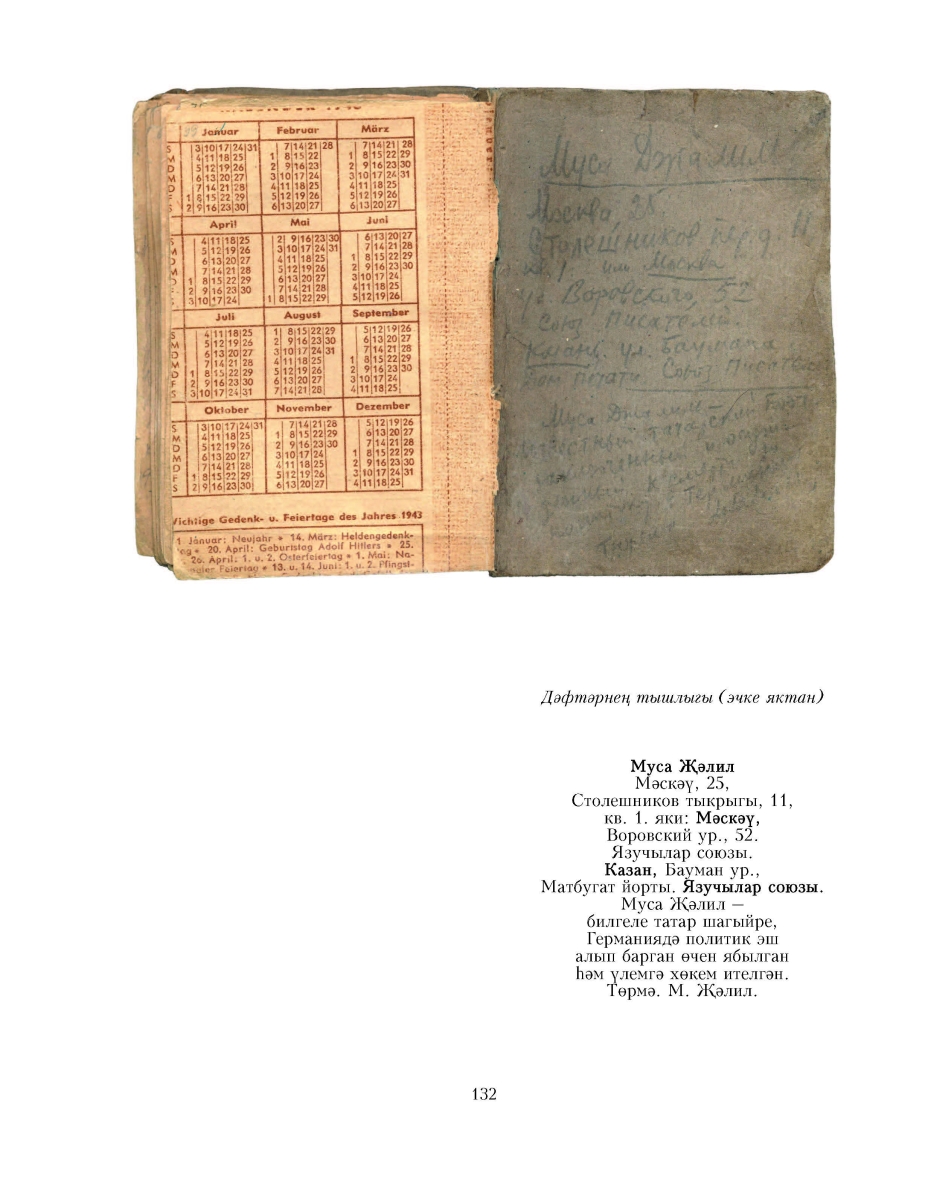 Januar Februar März
S 3 10 17 24 31 7 14 21 28 7 14 21 28
M 4 11 18 25 1 8 15 22 1 8 15 22 29
D 5 12 19 26 2 9 16 23 2 9 16 23 30
M 6 13 20 27 3 10 17 24 3 10 17 24 31
D 7 14 21 28 4 11 18 25 4 11 18 25
F 1 8 15 22 29 5 12 19 26 5 12 19 26
S 2 9 16 23 30 6 13 20 27 6 13 20 27
April Mai Juni
S 4 11 18 25 2 9 16 23 30 6 13 20 27
M 5 12 19 26 3 10 17 24 31 7 14 21 28
D 6 13 20 27 4 11 18 25 1 8 15 22 29
M 7 14 21 28 5 12 19 26 2 9 16 23 30
D 1 8 15 22 29 6 13 20 27 3 10 17 24
F 2 9 16 23 30 7 14 21 28 4 11 18 25
S 3 10 17 24 1 8 15 22 29 5 12 19 26
Juli August September
S 4 11 18 25 1 8 15 22 29 5 12 19 26
M 5 12 19 26 2 9 16 23 30 6 13 20 27
D 6 13 20 27 3 10 17 24 31 7 14 21 28
M 7 14 21 28 4 11 18 25 1 8 15 22 29
D 1 8 15 22 29 5 12 19 26 2 9 16 23 30
F 2 9 16 23 30 6 13 20 27 3 10 17 24
S 3 10 17 24 31 7 14 21 28 4 11 18 25
Oktober November Dezember
S 3 10 17 24 31 7 14 21 28 5 12 19 26
M 4 11 18 25 1 8 15 22 29 6 13 20 27
D 5 12 19 26 2 9 16 23 30 7 14 21 28
M 6 13 20 27 3 10 17 24 1 8 15 22 29
D 7 14 21 28 4 11 18 25 2 9 16 23 30
F 1 8 15 22 29 5 12 19 26 3 10 17 24 31
S 2 9 16 23 30 6 13 20 27 4 11 18 25
Wichtige Gedenk- u. Feiertage des Jahres 1943
1 Januar: Neujahr • 14. März: Heldengedenk-
tag • 20. April: Geburtstag Adolf Hitlers • 25.
26. April: 1. u. 2. Osterfeiertag • 1. Mai: Na-
Feiertag • 13. u. 14. Juni: 1. u. 2. Pfingst-
Муса Джалиль
Москва 25
Столешников пер. д. 11
кв. 1. или Москва
ул. Воровского, 52
Союз Писателей
Казань ул. Баумана
Дом печати Союз Писател
Муса Джалиль —
татарский
Дәфтәрнең тышлыгы (эчке яктан)
Муса Җәлил
Мәскәү, 25,
Столешников тыкрыгы, 11,
кв. 1. яки: Мәскәү,
Воровский ур., 52.
Язучылар союзы.
Казан, Бауман ур.,
Матбугат йорты. Язучылар союзы.
Муса Җәлил —
билгеле татар шагыйре,
Германиядә политик эш
алып барган өчен ябылган
һәм үлемгә хөкем ителгән.
Төрмә. М. Җәлил.
132